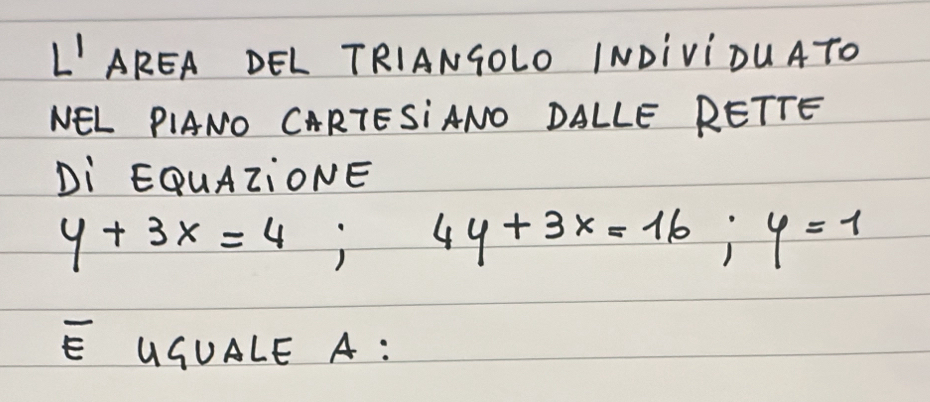 L' AREA DEL TRIANGOLO INDiViDUATO
NEL PIANO CARTESiANO DALLE RETTE
Di EQUAZiONE
y + 3x = 4 ; 4y + 3x = 16 ; y = 1
Ē UGUALE A :